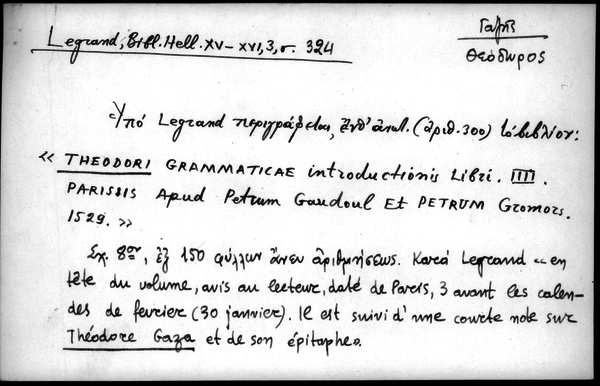 Legrand, Bibl. Hell. XV–XVI, 3, σ. 324
Γαζῆς
Θεόδωρος
Ὑπό Legrand περιγράφεται, ἔνθ' ἀνωτ. (ἀριθ. 300) τό βιβλίον:
« THEODORI GRAMMATICAE introductionis Libri. IIII.
PARISIIS Apud Petrum Gaudoul Et PETRUM Gromors.
1529. »
Σχ. 8ον, ἐξ 150 φύλλων ἄνευ ἀριθμήσεως. Κατά Legrand « en
tête du volume, avis au lecteur, daté de Paris, 3 avant les calen-
des de fevrier (30 janvier). Il est suivi d'une courte note sur
Théodore Gaza et de son épitaphe».